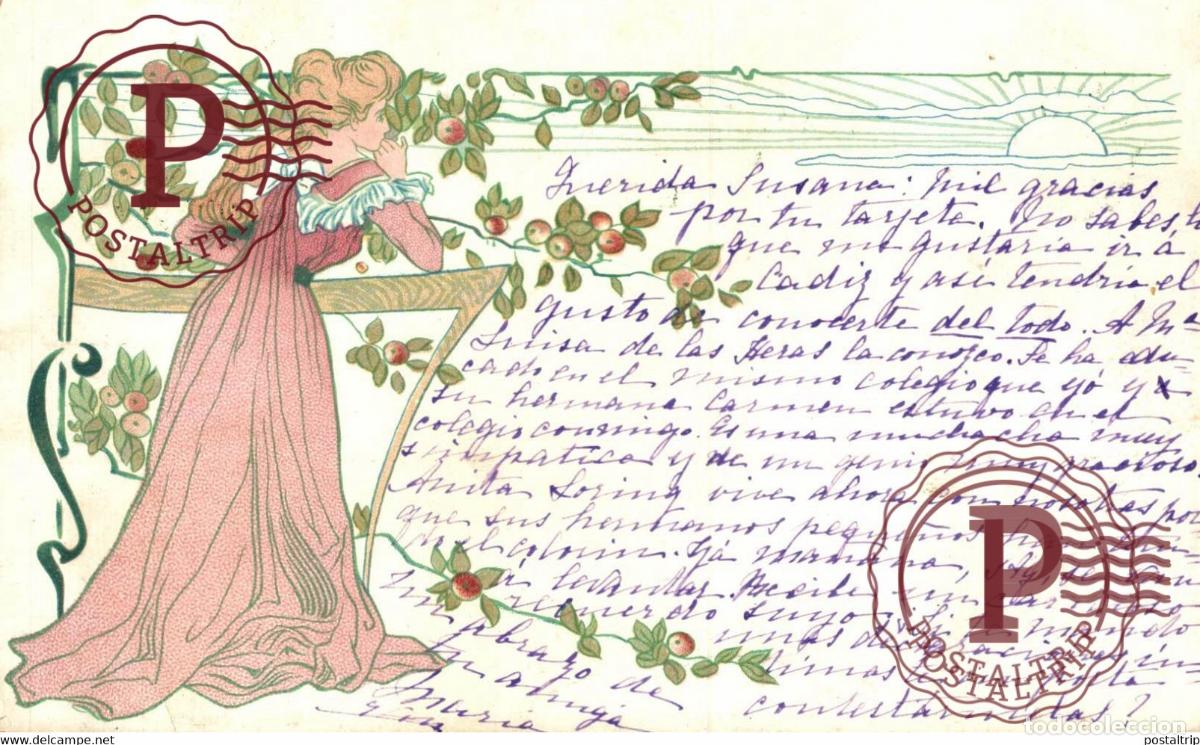 POSTALTRIP
Querida Susana: mil gracias
por tu tarjeta. No sabes
que me gustaria ir a
Cadiz y asi tendria el
gusto de conocerte del todo. A Mª
Luisa de las Heras la conozco. Se ha edu-
cado en el mismo colegio que yó y
su hermana Carmen estuvo en el
colegio conmigo. Es una muchacha muy
simpatica y de un genio muy gracioso
Anita Loring vive ahora con nosotras por
que sus hermanos pequeños
el colorin. Ya mañana,
levantar Recibe un
recuerdo suyo
un abrazo de
tu amiga
Maria
contestar
POSTALTRIP
todocoleccion
www.delcampe.net
postaltrip